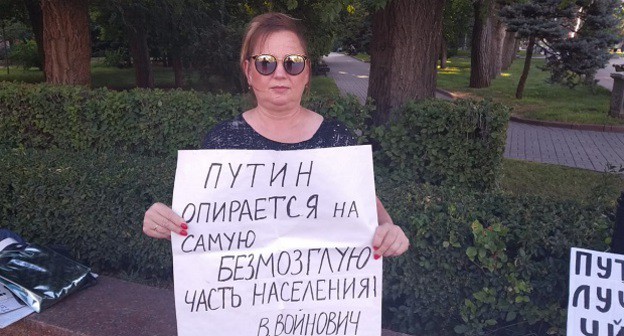 ПУТИН
ОПИРАЕТСЯ НА
САМУЮ
БЕЗМОЗГЛУЮ
ЧАСТЬ НАСЕЛЕНИЯ!
В.ВОЙНОВИЧ